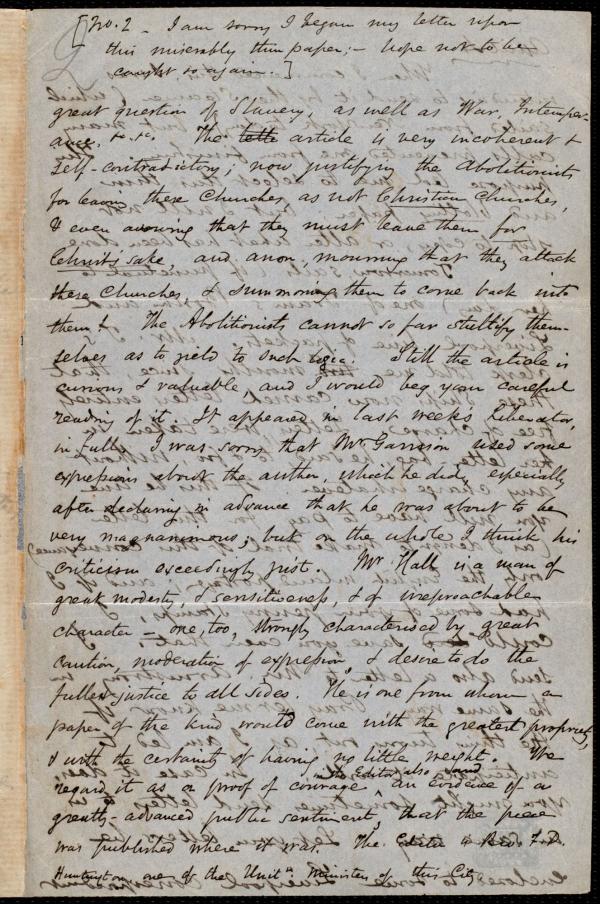 [No. 2 - I am sorry I began my letter upon
this miserably thin paper; - hope not to be
caught so again.]
great question of Slavery, as well as War, Intemper-
ance, &c. &c. The article is very incoherent &
self-contradictory; now justifying the Abolitionists
for leaving these Churches, as not Christian Churches,
& even avowing that they must leave them for
Christ's sake, and anon, mourning that they attack
these Churches & summoning them to come back into
them! The Abolitionists cannot so far stultify them-
selves as to yield to such logic. Still the article is
curious & valuable, and I would beg your careful
reading of it. It appeared in last weeks Liberator,
in full. I was sorry that Mr. Garrison used some
expressions about the author, which he did, especially
after declaring in advance that he was about to be
very magnanimous; but on the whole I think his
criticism exceedingly just. Mr Hall is a man of
great modesty, & sensitiveness, & of irreproachable
character - one, too, strongly characterised by great
caution, moderation of expression, & desire to do the
fullest justice to all sides. He is one from whom a
paper of the kind would come with the greatest propriety,
& with the certainty of having no little weight. We
regard it as a proof of courage in the Editor, also an evidence of a
greatly-advanced public sentiment, that the piece
was published where it was. The Editor is Rev. F. D.
Huntington, one of the Unitn. Ministers of this City.